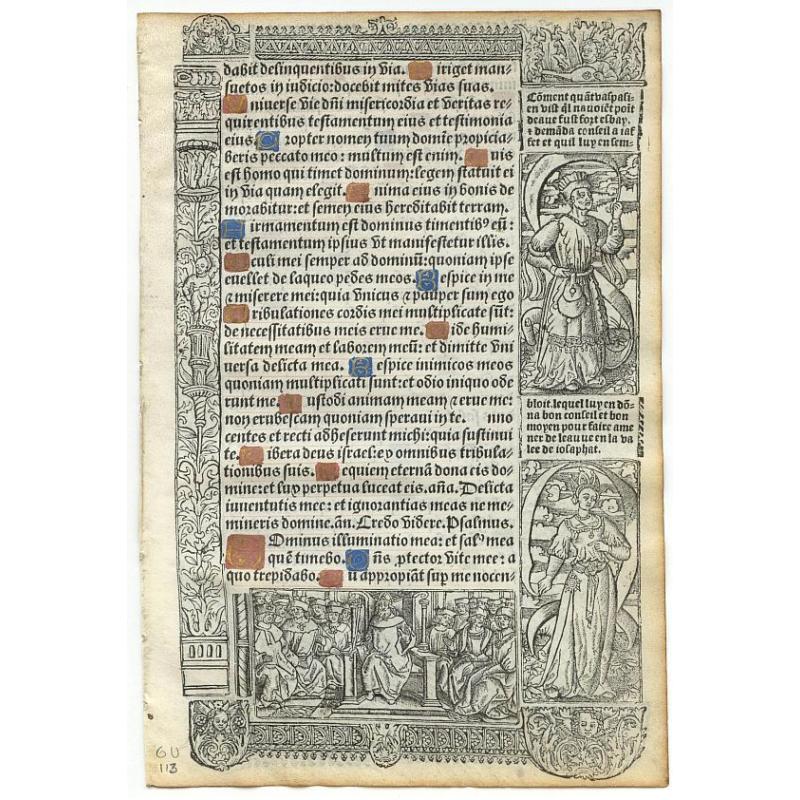 dabit delinquentibus in via. iriget man-
suetos in iudicio: docebit mites vias suas.
niuerse vie dñi misericordia et veritas re-
quirentibus testamentum eius et testimonia
eius. ropter nomen tuum domine propicia-
beris peccato meo: multum est enim. uis
est homo qui timet dominum: legem statuit ei
in via quam elegit. nima eius in bonis de
morabitur: et semen eius hereditabit terram.
irmamentum est dominus timentibꝰ eũ:
et testamentum ipsius vt manifestetur illis.
culi mei semper ad dominũ: quoniam ipse
euellet de laqueo pedes meos. espice in me
⁊ miserere mei: quia vnicus ⁊ pauper sum ego
ribulationes cordis mei multiplicate sũt:
de necessitatibus meis erue me. ide humi-
litatem meam et laborem meũ: et dimitte vni
uersa delicta mea. espice inimicos meos
quoniam multiplicati sunt: et odio iniquo ode
runt me. ustodi animam meam ⁊ erue me:
non erubescam quoniam speraui in te. nno
centes et recti adheserunt michi: quia sustinui
te. ibera deus israel: ex omnibus tribula-
tionibus suis. equiem eternã dona eis do-
mine: et lux perpetua luceat eis. añã. Delicta
iuuentutis mee: et ignorantias meas ne me-
mineris domine. añ. Credo videre. Psalmus.
Ominus illuminatio mea: et salꝰ mea
quẽ timebo. ñs ꝓtector vite mee: a
quo trepidabo. ũ appropiãt sup me nocen-
Cõment quãt vaspasi-
en vist q̃l nauoiẽt poit
deaue fust fort esbay.
⁊ demãda conseil a iaf
fet et quil luy en sem-
bloit. lequel luy en dõ-
na bon conseil et bon
moyen pour faire ame
ner de leaue en la va
lee de iosaphat.
6U
113